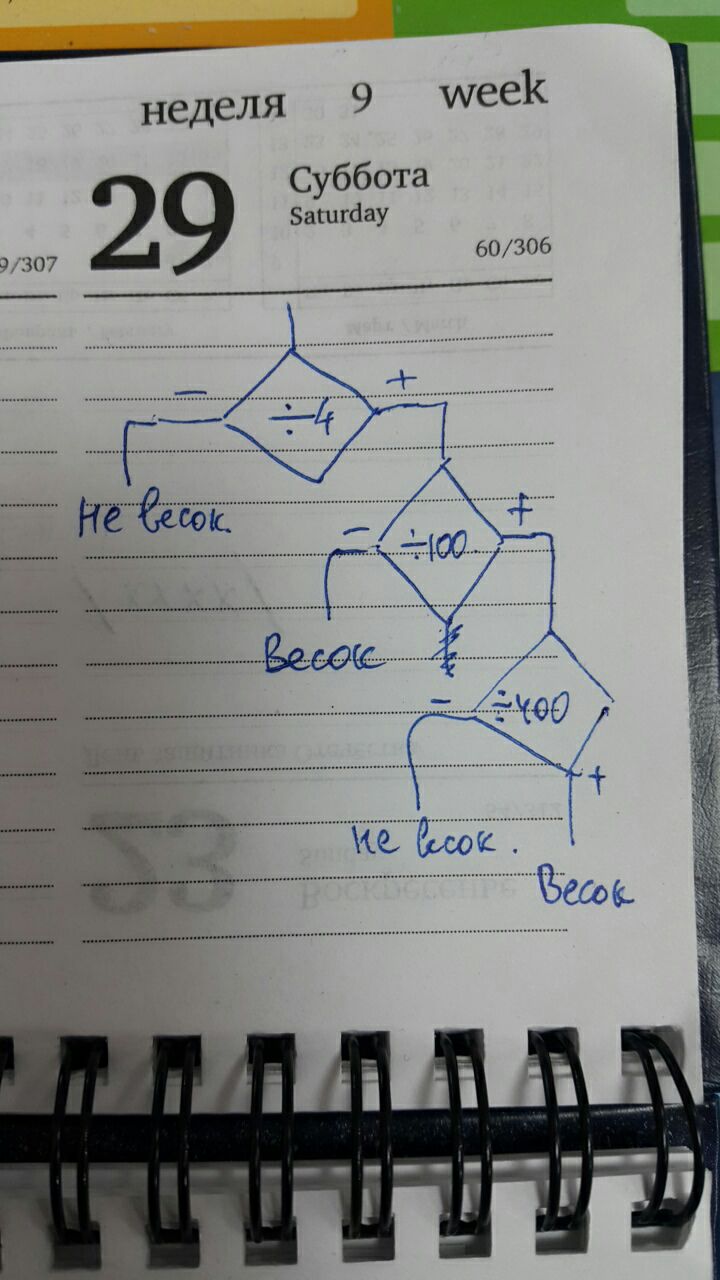 неделя 9 week
29 Суббота
Saturday
9/307
60/306
− +
÷4
Не весок.
− +
÷100
Весок
−
÷400
+
Не весок.
Весок